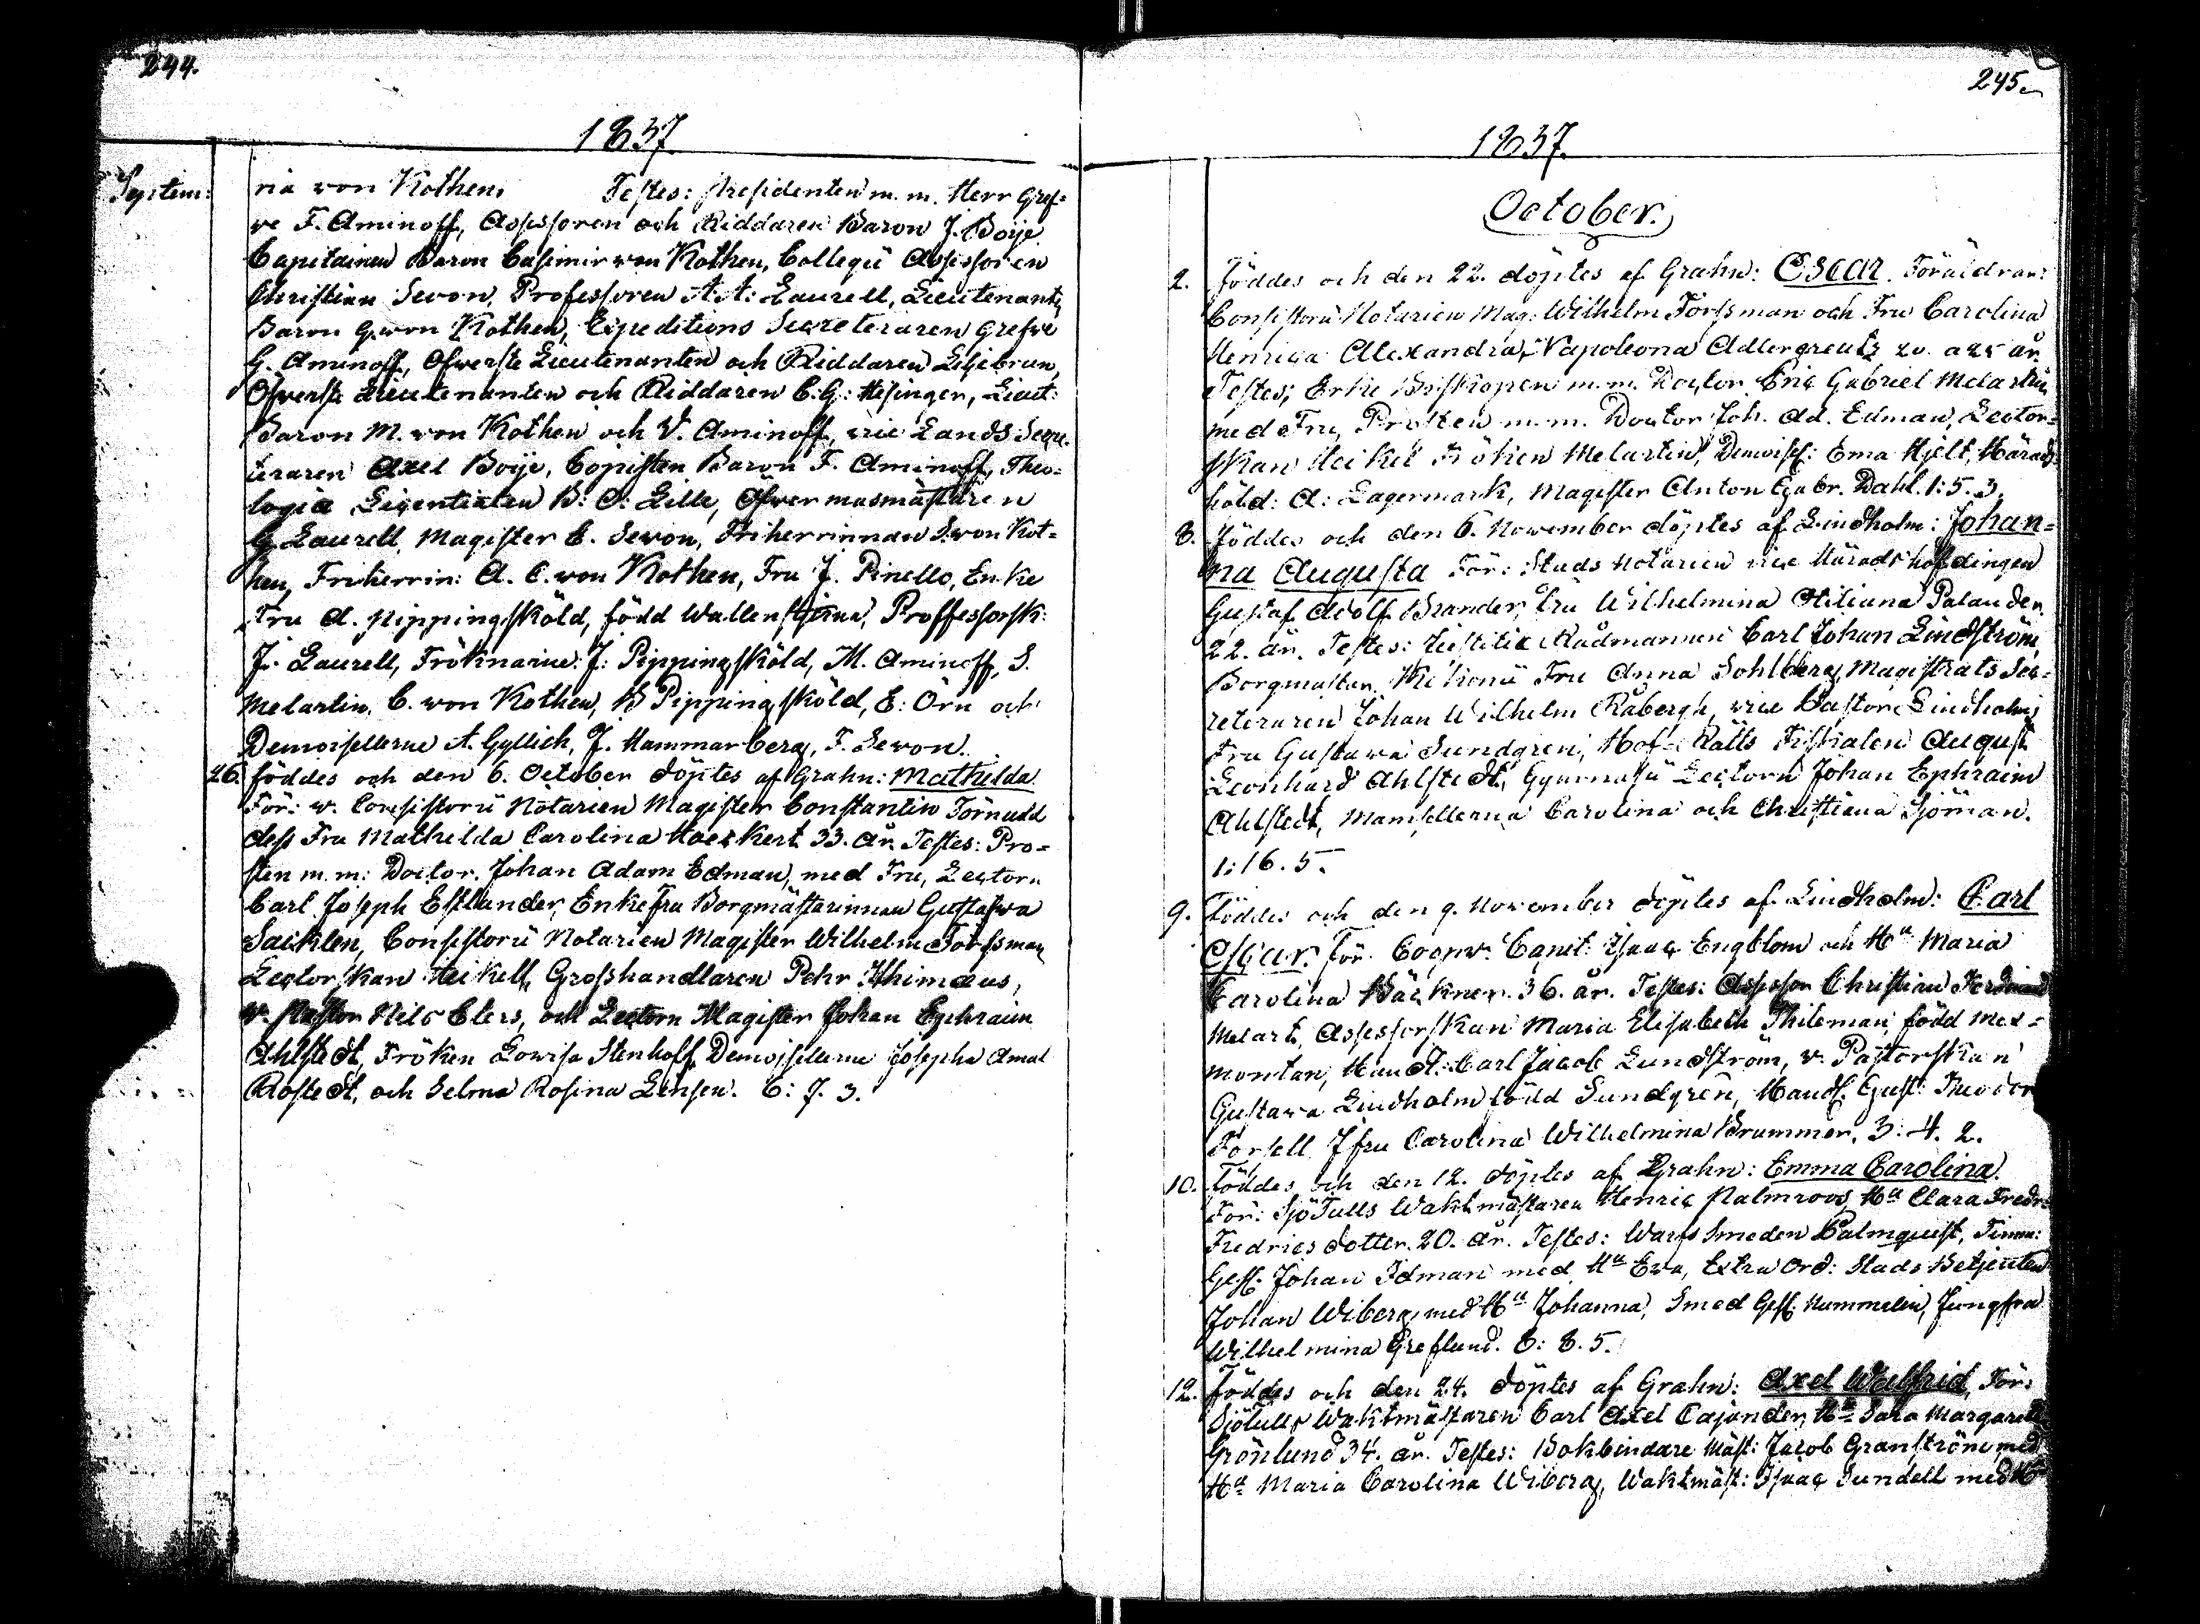 244.
1837.
Septem:
ria von Kothen, Testes: Presidenten m. m. Herr Gref=
ve F. Aminoff, Assessoren och Riddaren Baron J. Boije
Capitainen Baron Casimir von Kothen, Collegii Assessoren
Christian Sevon, Professoren A. A: Laurell, Lieutenant,
Baron G. von Kothen, Expeditions Secreteraren Grefve
G. Aminoff, Öfverste Lieutenanten och Riddaren Liljebrun,
Öfverste Lieutenanten och Riddaren C. G: Hisinger, Lieut:
Baron M. von Kothen och V. Aminoff, vice Lands Secre-
teraren Axel Boije, Copisten Baron F. Aminoff, Theo=
logiæ Licentiaten B: O: Lille, Öfver masmästaren
G. Laurell, Magister E. Sevon, Friherrinnan S. von Kot=
hen, Friherrin: A. C. von Kothen, Fru J. Pinello, Enke
Fru A. Pippingsköld, född Wallenstjerna, Proffessorsk:
J. Laurell, Fröknarne: J: Pippingsköld, M. Aminoff, S.
Melartin, C. von Kothen, B Pippingsköld, E: Örn och
Demoisellerne A. Gyllich, J. Hammarberg, F. Sevon.
26. föddes och den 6. October döptes af Grahn: Mathilda
För: v. Consistorii Notarien Magister Constantin Törnudd
dess Fru Mathilda Carolina Hoeckert 33. år. Testes: Pro=
sten m. m: Doctor. Johan Adam Edman, med Fru, Lectorn
Carl Joseph Estlander, Enke Fru Borgmästarinnan Gustafva
Sacklen, Consistorii Notarien Magister Wilhelm Forssman
Lectorskan Heikell, Grosshandlaren Pehr Thimæus,
v. Pastor Nils Elers, och Lectorn Magister Johan Ephraim
Ahlstedt, Fröken Lovisa Stenhoff, Demoisellerne Josepha Amal
Rostedt, och Selma Rosina Lensen. C: 7. 3.
245
1837.
October.
2. Föddes och den 22. döptes af Grahn: Oscar. Föräldrar:
Consistorii Notarien Mag: Wilhelm Forssman och Fru Carolina
Henrica Alexandra Napoleona Adlercreutz 20. a 25 år.
Testes; Erke Biskopen m. m. Doctor Eric Gabriel Melartin
med Fru, Prosten m. m. Doctor Joh. Ad. Edman, Lector=
skan Heikel Fröken Melartin, Demoisell: Ema Hjelt, Härads
höfd: A: Lagermark, Magister Anton Gabr. Dahl. 1: 5. 3.
8. föddes och den 6. November döptes af Lindholm: Johan=
na Augusta För: Stads Notarien vice Häradshöfdingen
Gustaf Adolf Brander, Fru Wilhelmina Otiliana Palander,
22. år. Testes: Justitiæ Rådmannen Carl Johan Lindström,
Borgmästar Fru Anna Sohlberg, Magistrats Sec=
reteraren Johan Wilhelm Råbergh, vice Pastor Lindholms
Fru Gustava Sundgren, Hof=Rätts Fiskalen August
Leonhard Ahlstedt, Gymnasii Lectorn Johan Ephraim
Ahlstedt, Mamsellerna Carolina och Christiana Sjöman.
1: 16. 5.
9. föddes och den 9. November döptes af Lindholm: Carl
Oscar. För: Coopv. Capit: Isaac Engblom och Hu Maria
Carolina Bäckner. 36. år. Testes: Assessor Christian Ferdinand
Melart, Assessorskan Maria Elisabeth Thileman, född Mex=
montan, Handl: Carl Jacob Lundström, v. Pastorskan
Gustava Lindholm född Sundgren, Handl. Gust: Theodor
Forsell Jfru Carolina Wilhelmina Brummer. 3: 4. 2.
10. Föddes och den 12. döptes af Grahn: Emma Carolina.
För: Sjö Tulls Waktmästaren Henric Palmroos, Hu Clara Fredr=
Fredricsdotter. 20. år. Testes: Warfs Smeden Palmquist, Timm:
Gesl. Johan Idman med Hu Eva, Extra Ord: Stads Betjenten
Johan Wiberg med Hu Johanna, Smed Gesl. Nummelin, Jungfru
Wilhelmina Greflund. 8: 8. 5.
12. föddes och den 24. döptes af Grahn: Axel Walfrid, För:
Sjötulls Waktmästaren Carl Axel Cajander, Hu Sara Margaret
Grönlund 34. år. Testes: Bokbindare Mäst: Jacob Granström, med
Hu Maria Carolina Wiberg, Waktmäst: Isaac Sundell med Hu